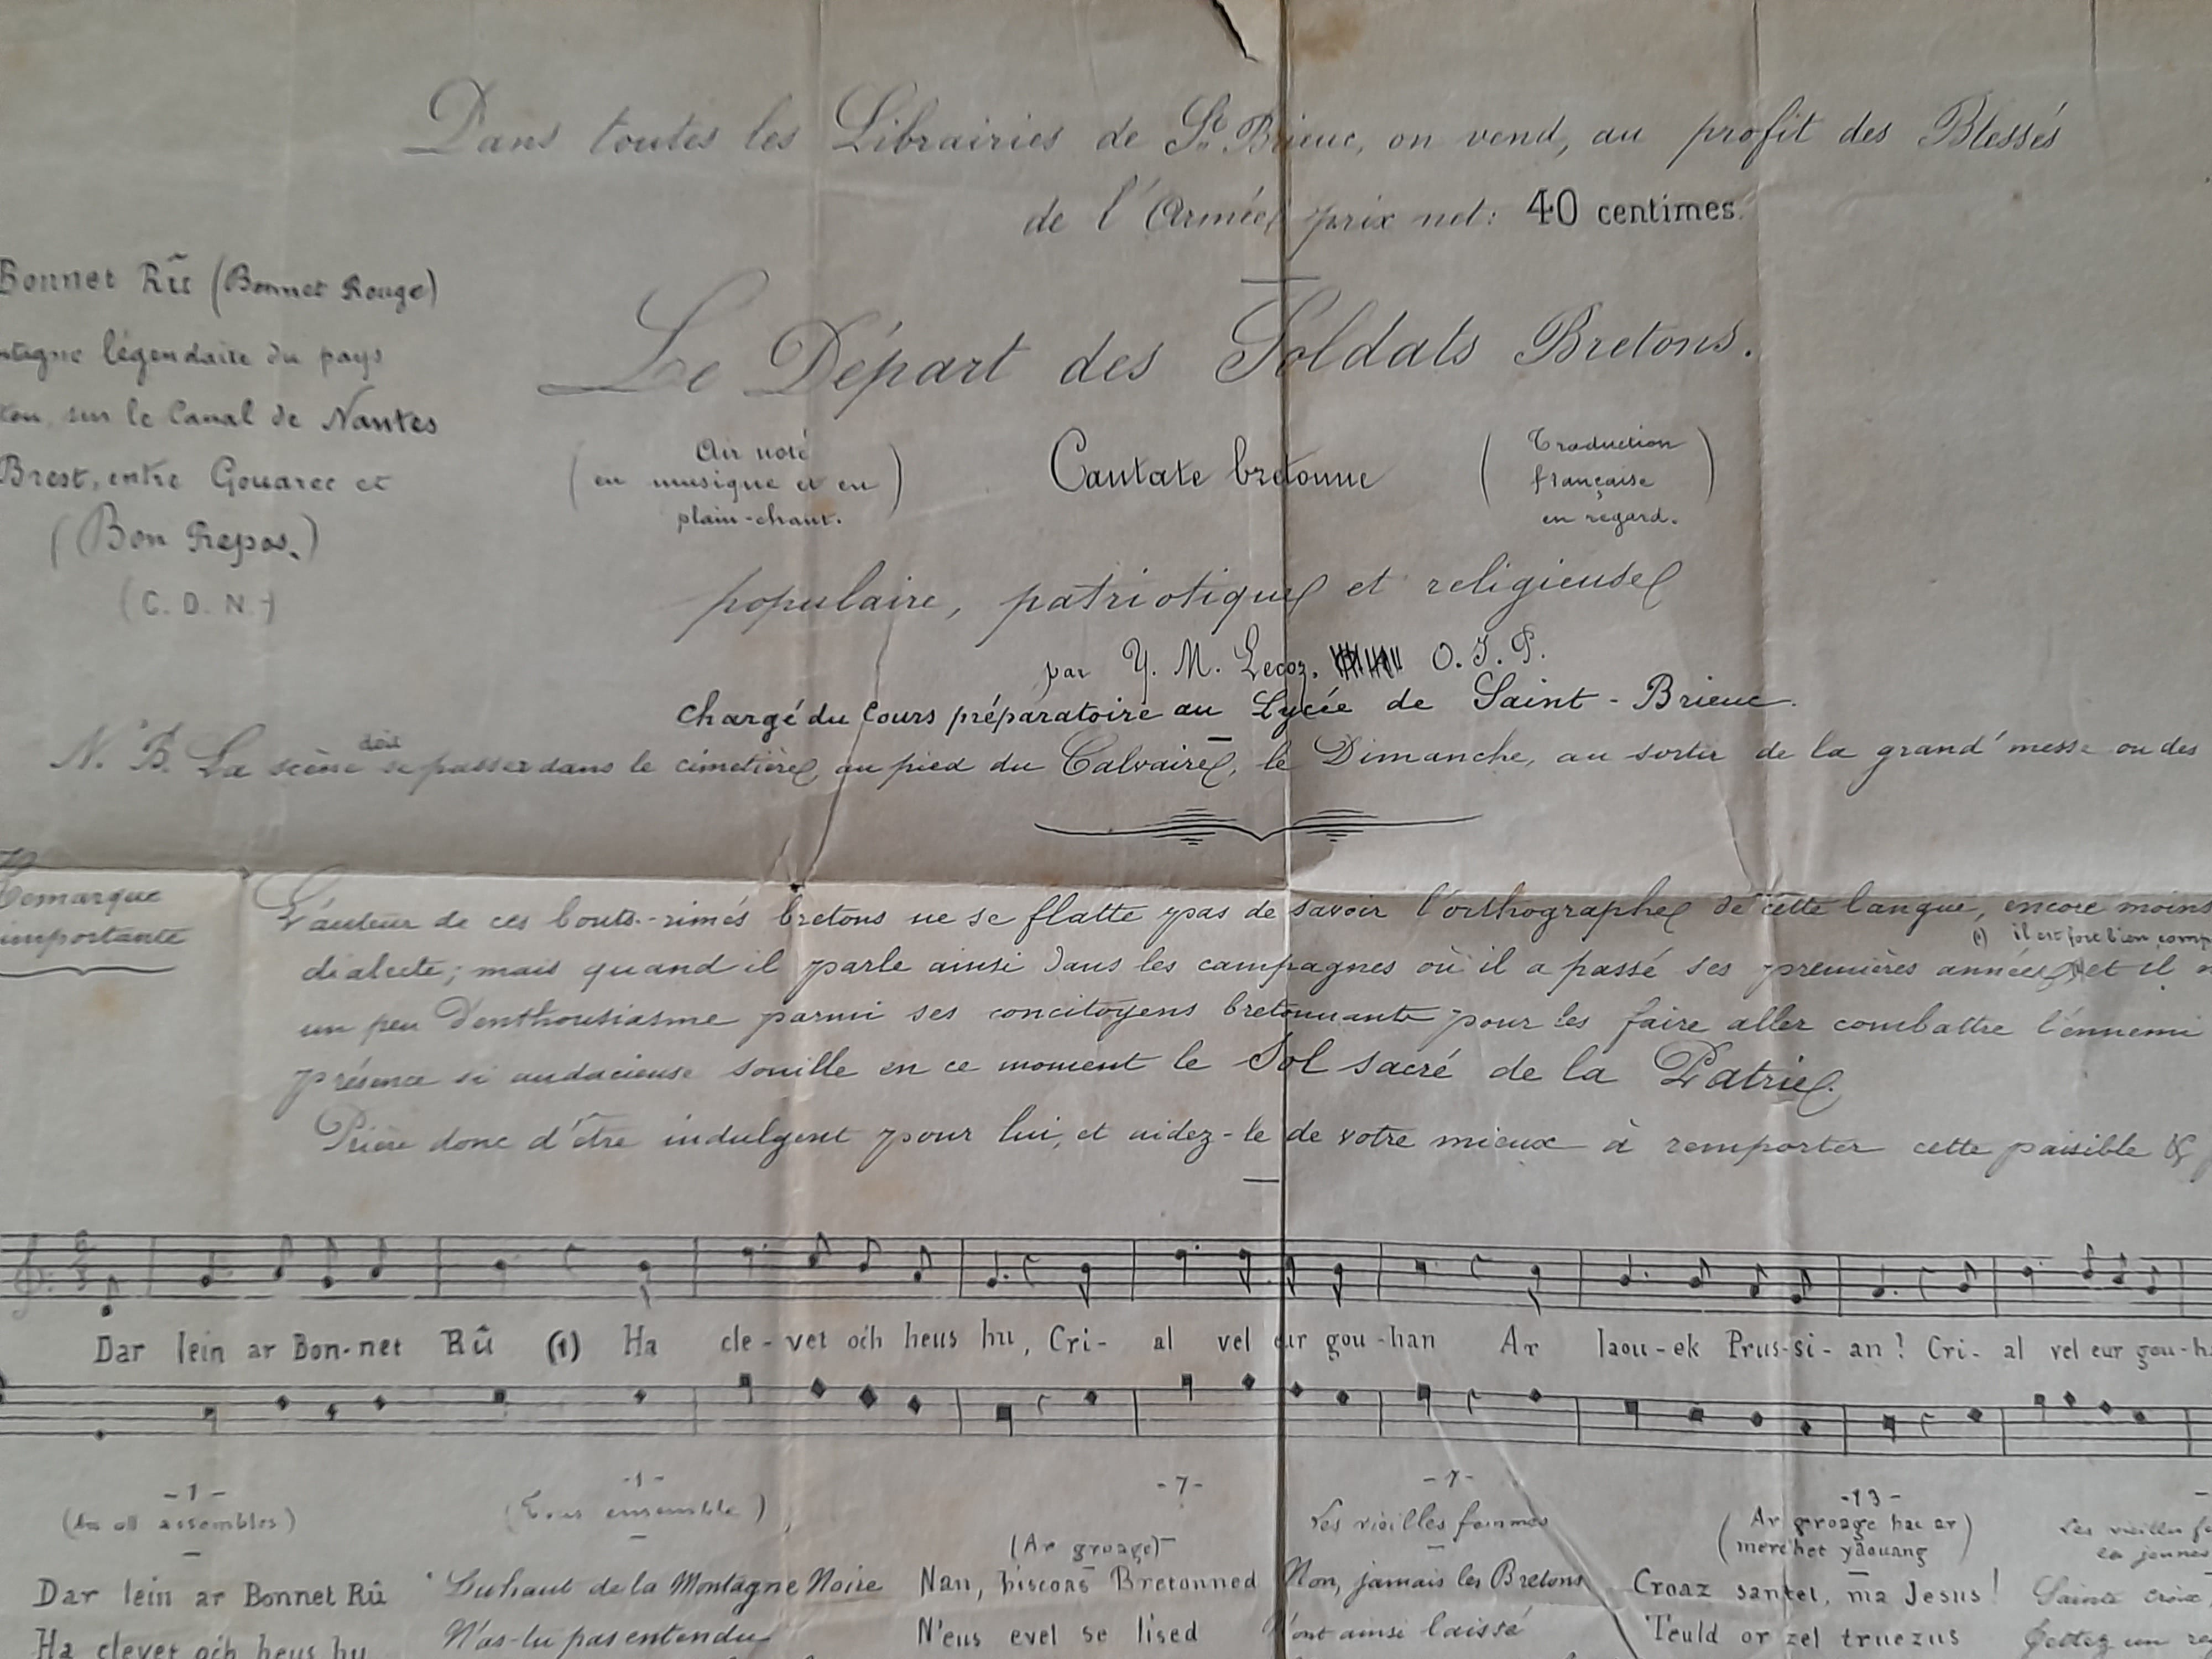 Dans toutes les Librairies de St. Brieuc, on vend, au profit des Blessés
de l'Armée, prix net: 40 centimes.
Bonnet Rû (Bonnet Rouge)
légendaire du pays
sur le Canal de Nantes
Brest, entre Gouarec et
(Bon Repos.)
(C. D. N.)
Le Départ des Soldats Bretons.
(Air noté
en musique et en
plain-chant.)
Cantate bretonne
(Traduction
française
en regard.)
populaire, patriotique et religieuse
par Y. M. Lecoz. O. I. P.
chargé du Cours préparatoire au Lycée de Saint-Brieuc.
N. B. La scène doit se passer dans le cimetière, au pied du Calvaire, le Dimanche, au sortir de la grand'messe ou des
Remarque
importante
L'auteur de ces bouts-rimés bretons ne se flatte pas de savoir l'orthographe de cette langue, encore moins
(1) il est fort bien
dialecte; mais quand il parle ainsi dans les campagnes où il a passé ses premières années et il
un peu d'enthousiasme parmi ses concitoyens bretonnants pour les faire aller combattre l'ennemi
présence si audacieuse souille en ce moment le Sol sacré de la Patrie.
Prière donc d'être indulgent pour lui, et aidez-le de votre mieux à remporter cette paisible &
Dar lein ar Bon-net Rû (1) Ha cle-vet och heus hu, Cri-al vel eur gou-han Ar laou-ek Prus-si-an! Cri-al vel eur gou-h
-1-
(An oll assembles)
Dar lein ar Bonnet Rû
Ha clevet och heus hu
-1-
(Tous ensemble)
Du haut de la Montagne Noire
N'as-tu pas entendu
-7-
(Ar groage)
Nan, biscoas Bretonned
N'eus evel se lised
-7-
Les vieilles femmes
Non, jamais les Bretons
N'ont ainsi laissé
-13-
(Ar groage hac ar
merc'het yaouang)
Croaz santel, ma Jesus!
Teuld or zel truezus
Les vieilles
Sainte croix,
Jettez un